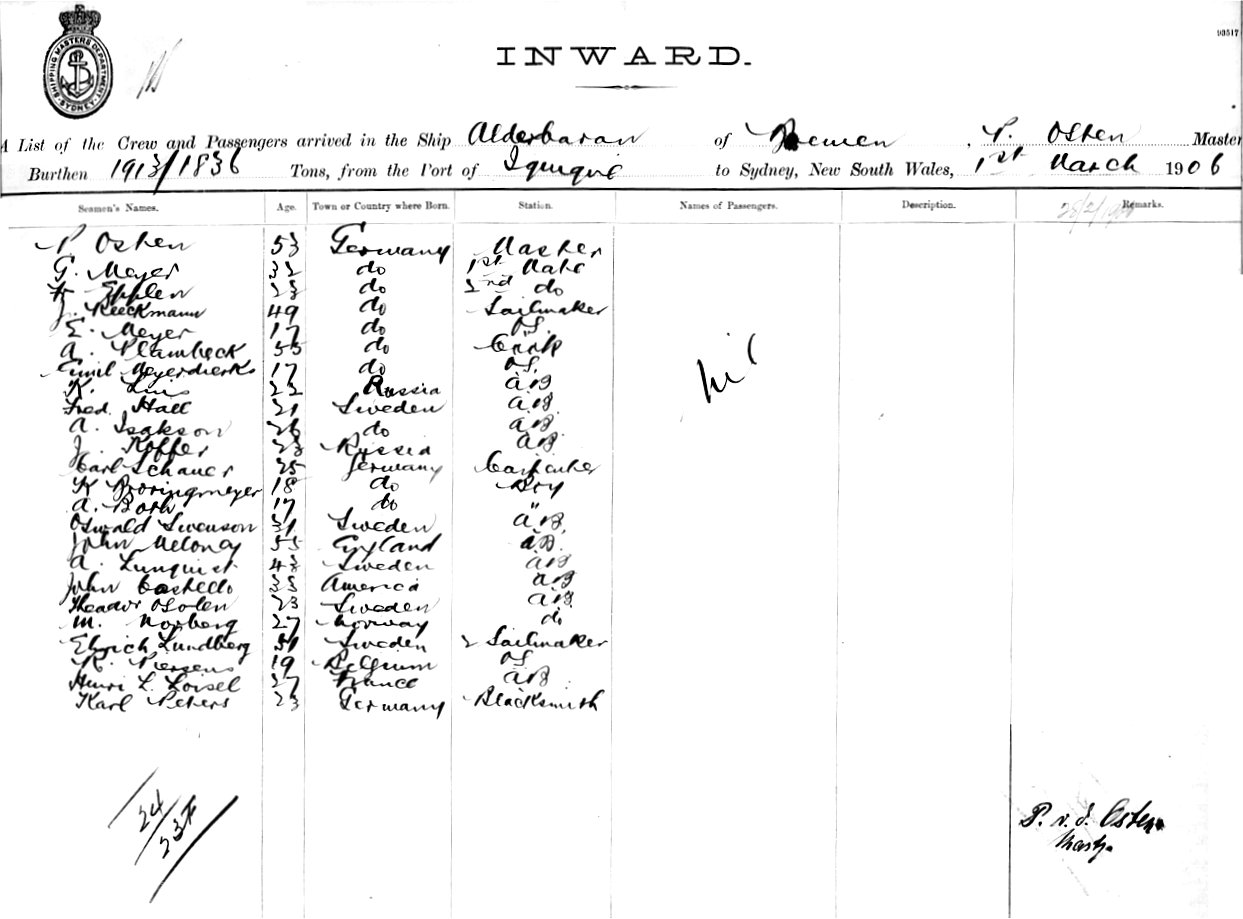 93517
SHIPPING MASTERS DEPARTMENT SYDNEY
INWARD.
A List of the Crew and Passengers arrived in the Ship Alderbaran of Bremen, P. Osten Master
Burthen 1913/1836 Tons, from the Port of Iquique to Sydney, New South Wales, 1st March 1906
Seamen's Names. Age. Town or Country where Born. Station. Names of Passengers. Description. Remarks.
P Osten 53 Germany Master
G. Meyer 32 do 1st Mate
K Epplen 23 do 2nd do
J. Reeckmann 49 do Sailmaker
E. Meyer 17 do O.S.
A. Plambeck 55 do Cook
Emil Meyerdierks 17 do O.S.
K. 22 Russia A.B
Fred. Hall 21 Sweden A.B.
A. Isakson 26 do A.B.
J. Koffer 23 Russia A.B.
Carl Schauer 25 Germany Carpenter
K Broringmeyer 18 do Boy
A. Both 17 do "
Oswald Swenson 31 Sweden A.B.
John Meloney 55 England A.B.
A. Lunquist 43 Sweden A.B
John Costello 35 America A.B
Theador Osolen 23 Sweden A.B.
M. Norberg 27 Norway do
Ehrich Lundberg 51 Sweden 2 Sailmaker
R. Piersens 19 Belgium O.S.
Henri L. Loisel 27 France A.B.
Karl Peters 23 Germany Blacksmith
nil
24
P. v. d. Osten
Master